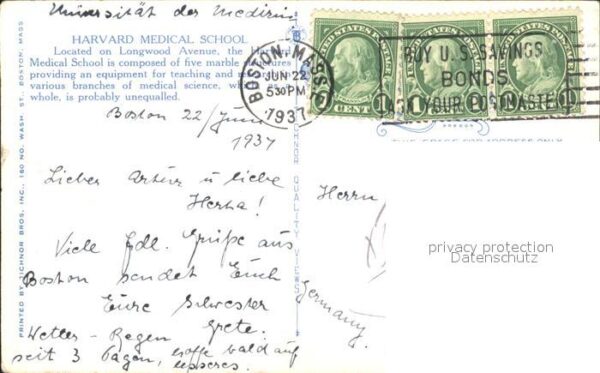 Universität der Medizin
HARVARD MEDICAL SCHOOL
Located on Longwood Avenue, the Harvard
Medical School is composed of five marble structures
providing an equipment for teaching and
various branches of medical science, which
whole, is probably unequalled.
Boston 22/Juni
1937
Lieber Artur u liebe
Herta!
Viele Grüße aus
Boston sendet Euch
Eure Schwester
Grete.
Wetter - Regen
seit 3 Tagen, hoffe bald auf
besseres.
PRINTED BY TICHNOR BROS. INC., 160 NO. WASH. ST. BOSTON, MASS
TICHNOR QUALITY VIEWS
BOSTON, MASS
JUN 22
5 30 PM
1937
UNITED STATES POSTAGE
1 CENT 1
UNITED STATES POSTAGE
1
UNITED STATES POSTAGE
1
BUY U.S. SAVINGS
BONDS
ASK YOUR POSTMASTER
Herrn
Germany.
privacy protection
Datenschutz